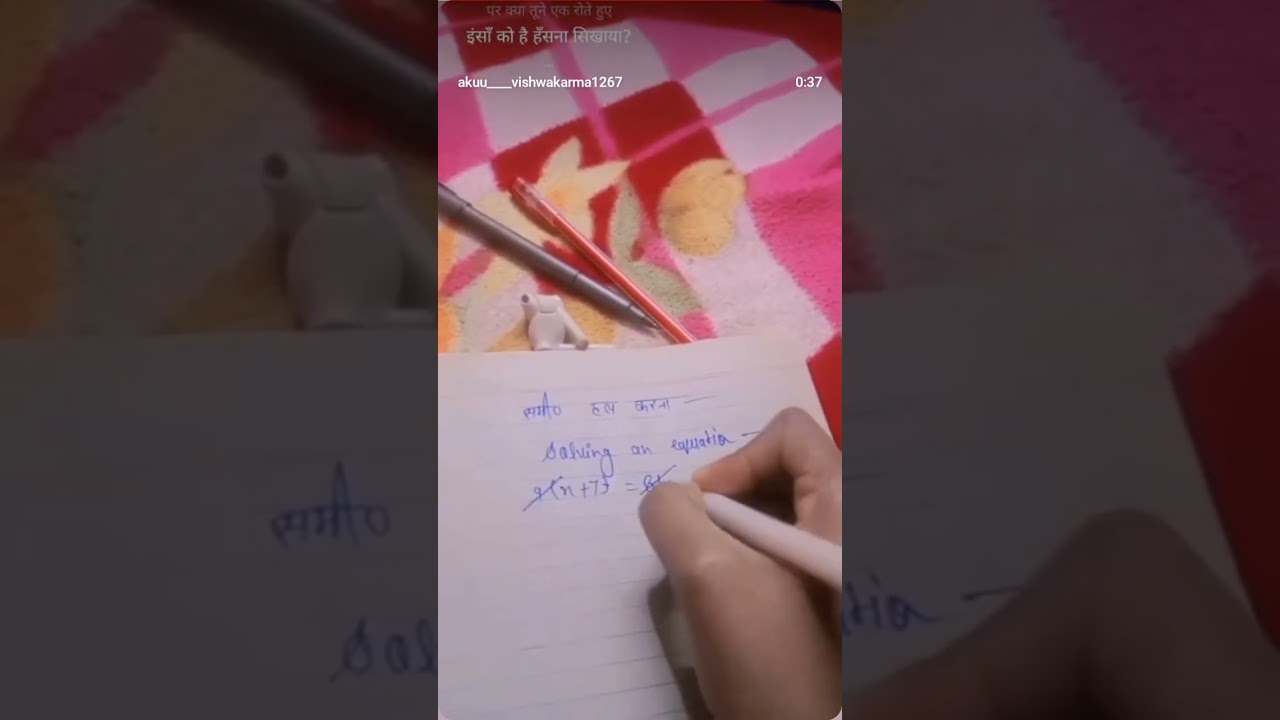 पर क्या तूने एक रोते हुए
इंसाँ को है हँसना सिखाया?
akuu____vishwakarma1267 0:37
समी० हल करना —
Solving an equation —
(x+7) =